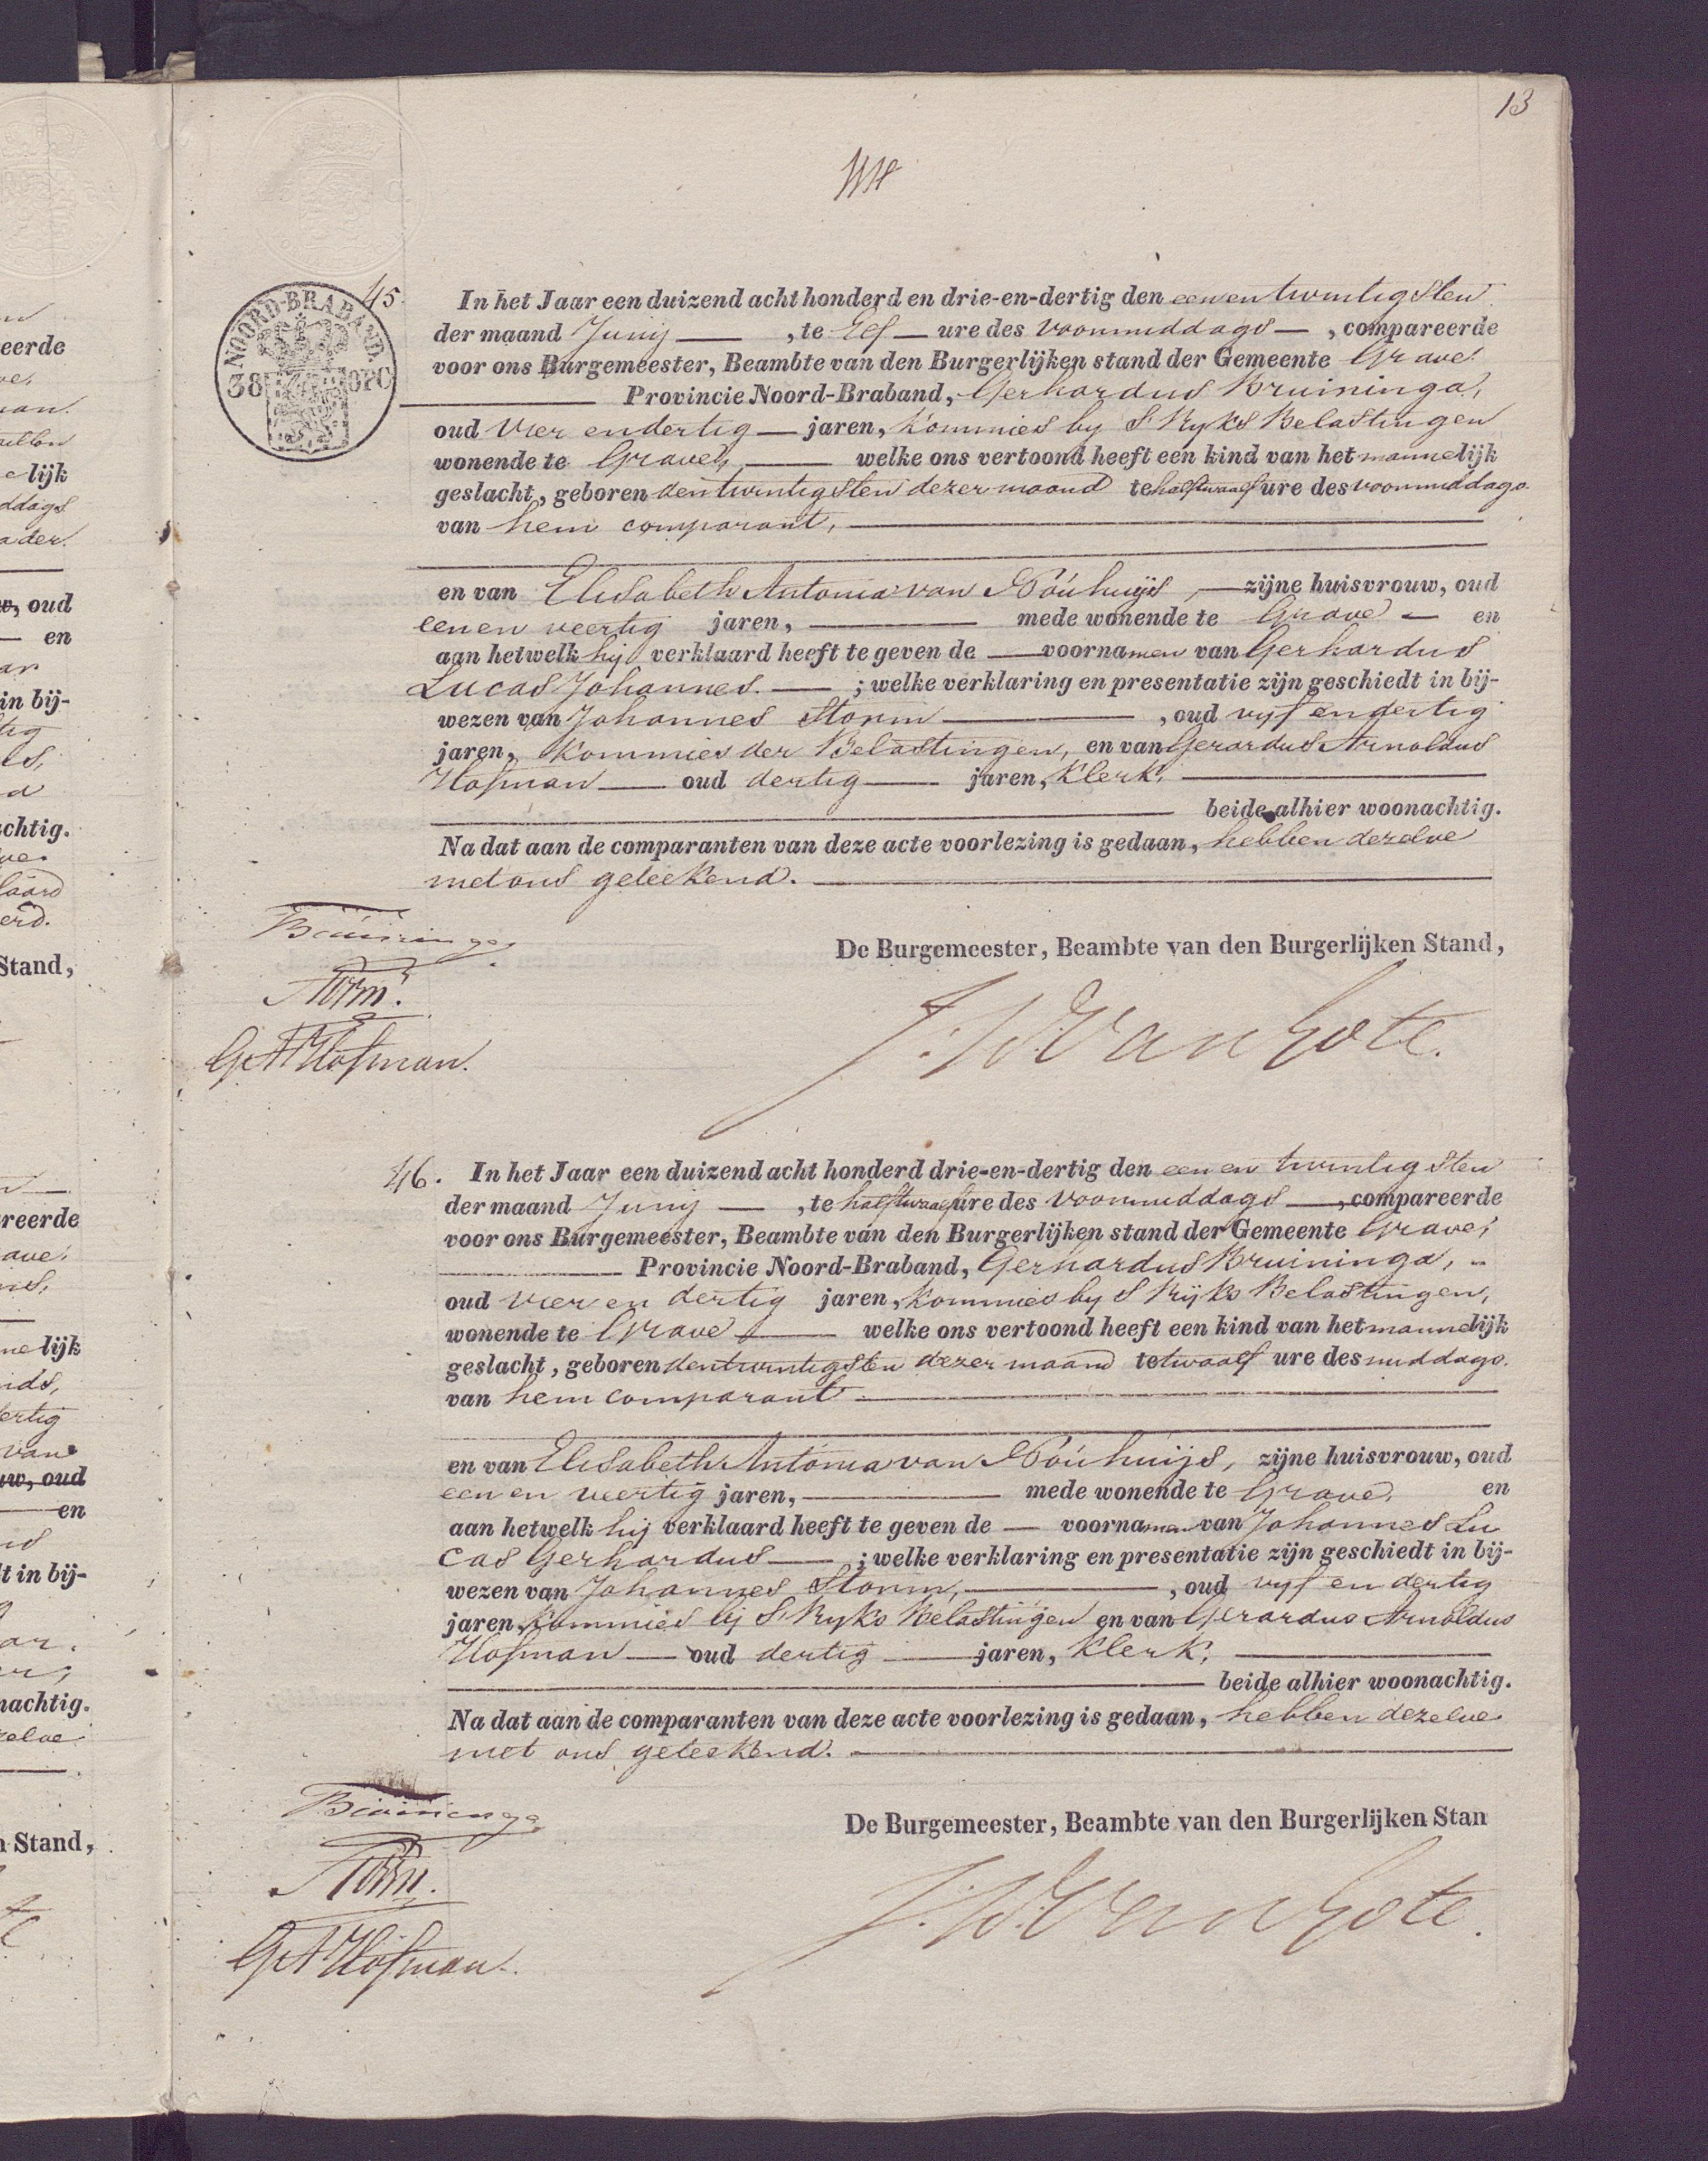 13
NOORD-BRABAND.
38
OPC
45.
In het Jaar een duizend acht honderd en drie-en-dertig den een en twintigsten
der maand Junij , te Elf ure des voormiddags , compareerde
voor ons Burgemeester, Beambte van den Burgerlijken stand der Gemeente Grave.
Provincie Noord-Braband, Gerhardus Bruininga,
oud Vier en dertig jaren, Kommies by S Ryks Belastingen
wonende te Grave, welke ons vertoond heeft een kind van het mannelijk
geslacht, geboren den twintigsten dezer maand te half twaalf ure des voormiddags
van hem comparant,
en van Elisabeth Antonia van Nouhuijs, zijne huisvrouw, oud
een en veertig jaren, mede wonende te Grave en
aan hetwelk hij verklaard heeft te geven de voornamen van Gerhardus
Lucas Johannes. ; welke verklaring en presentatie zijn geschiedt in bij-
wezen van Johannes Storm , oud vyf en dertig
jaren, Kommies der Belastingen, en van Gerardus Arnoldus
Hofman oud dertig jaren, Klerk,
beide alhier woonachtig.
Na dat aan de comparanten van deze acte voorlezing is gedaan, hebben dezelve
met ons geteekend.
Bruininga
De Burgemeester, Beambte van den Burgerlijken Stand,
Storm.
GA Hofman.
46. In het Jaar een duizend acht honderd drie-en-dertig den een en twintigsten
der maand Junij , te half twaalf ure des voormiddags , compareerde
voor ons Burgemeester, Beambte van den Burgerlijken stand der Gemeente Grave,
Provincie Noord-Braband, Gerhardus Bruininga,
oud vier en dertig jaren, Kommies by S Rijks Belastingen,
wonende te Grave welke ons vertoond heeft een kind van het mannelijk
geslacht, geboren den twintigsten dezer maand te twaalf ure des middags.
van hem comparant
en van Elisabeth Antonia van Nouhuijs, zijne huisvrouw, oud
een en veertig jaren, mede wonende te Grave, en
aan hetwelk hij verklaard heeft te geven de voornamen van Johannes Lu
cas Gerhardus ; welke verklaring en presentatie zijn geschiedt in bij-
wezen van Johannes Storm, , oud vyf en dertig
jaren, Kommies bij S Ryks Belastingen en van Gerardus Arnoldus
Hofman oud dertig jaren, Klerk,
beide alhier woonachtig.
Na dat aan de comparanten van deze acte voorlezing is gedaan, hebben dezelve
met ons geteekend.
Bruininga
De Burgemeester, Beambte van den Burgerlijken Stan
Storm.
GA Hofman.